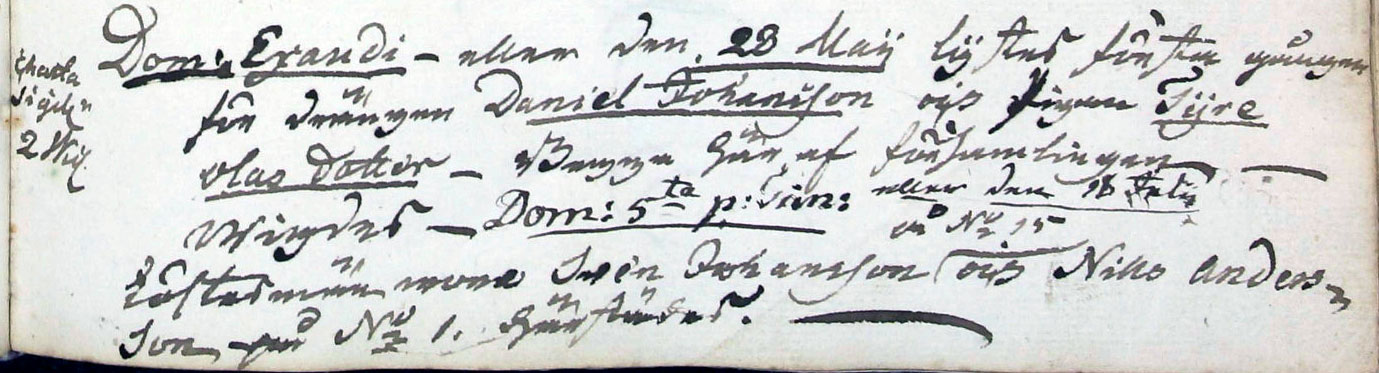 Charta
Sigill
2 Wit.
Dom: Exaudi – eller den 28 Maij lystes första gången
för drängen Daniel Johansson och Pigan Tyre
Olas Dotter – Begge här af församlingen –
Wigdes – Dom: 5ta p: Trin: eller den 18 Julii
på No 15
Löftesmän woro Swen Johansson och Nills Anders-
son på No 1. härstädes.